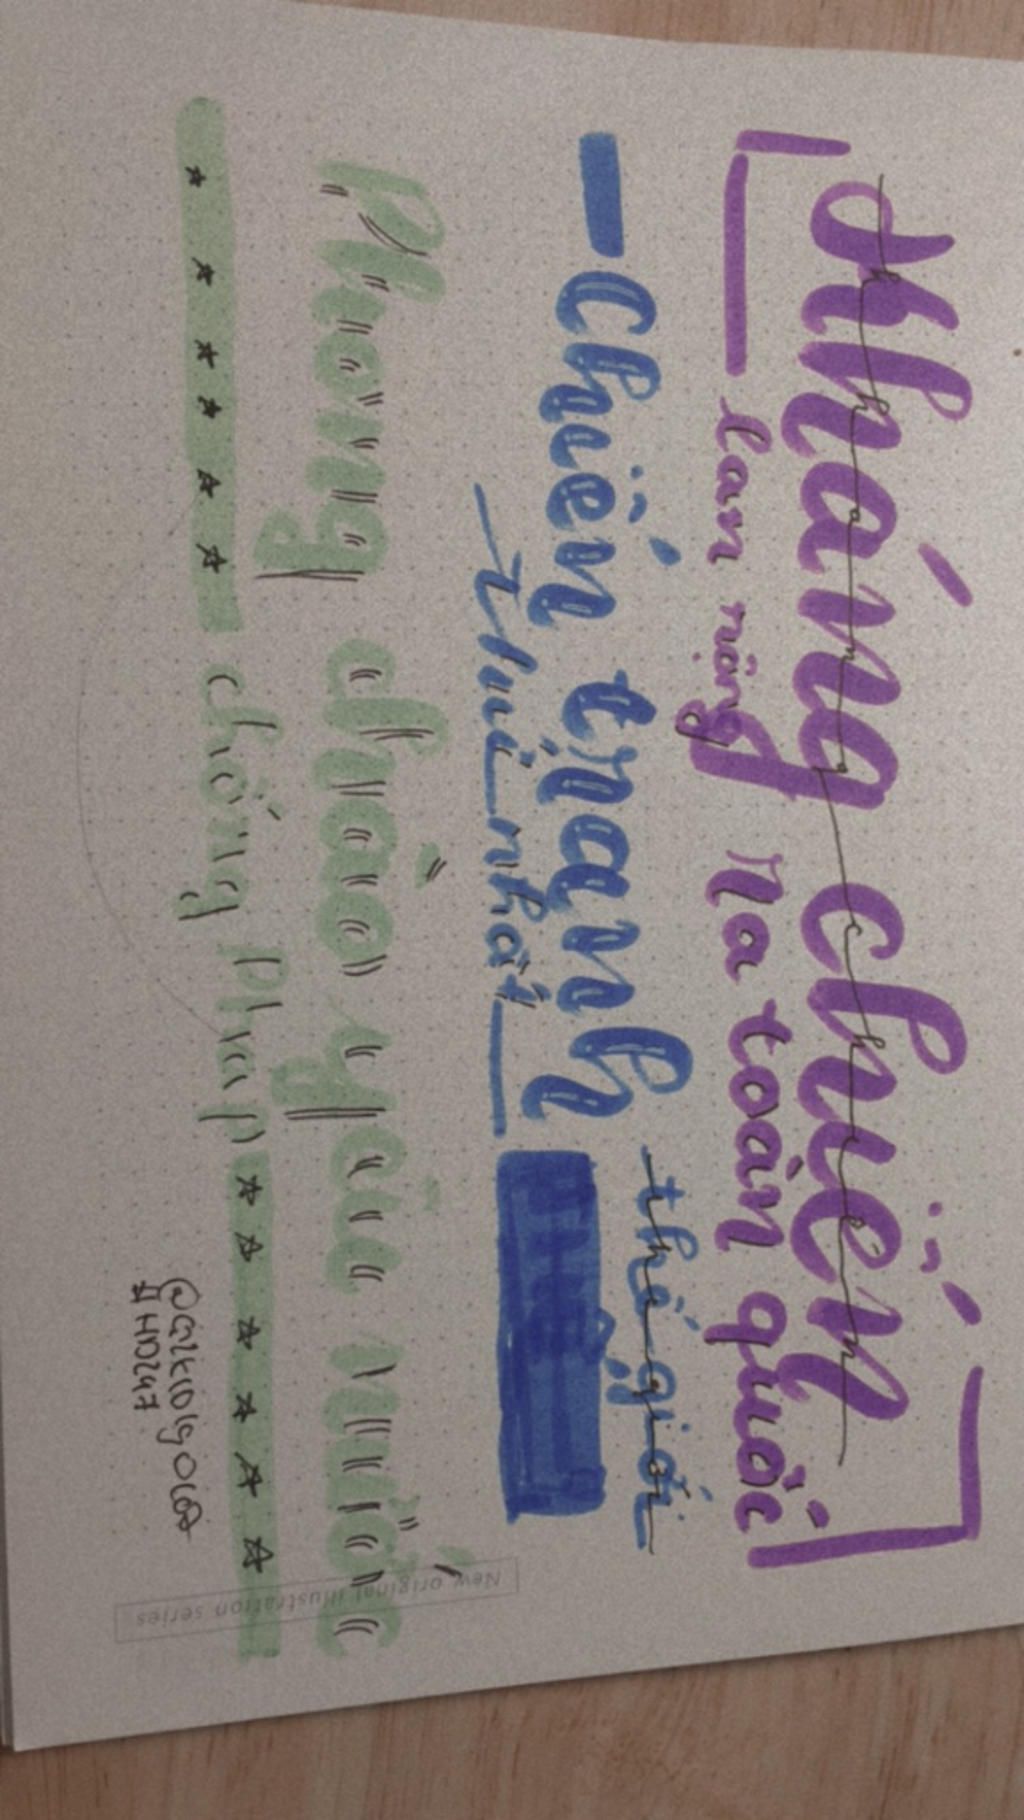 Kháng chiến
lan rộng ra toàn quốc
Chiến tranh
thế giới
Thứ nhất
Phong trào yêu nước
chống Pháp
New original illustration series